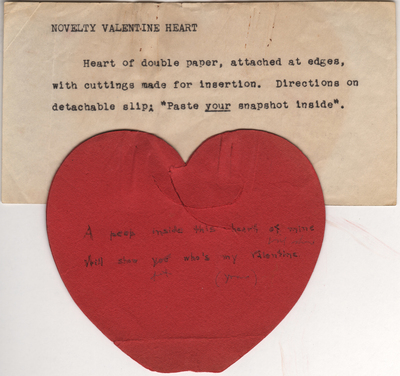 NOVELTY VALENTINE HEART
Heart of double paper, attached at edges,
with cuttings made for insertion. Directions on
detachable slip; "Paste your snapshot inside".
A peep inside this heart of mine
Will show you who's my Valentine